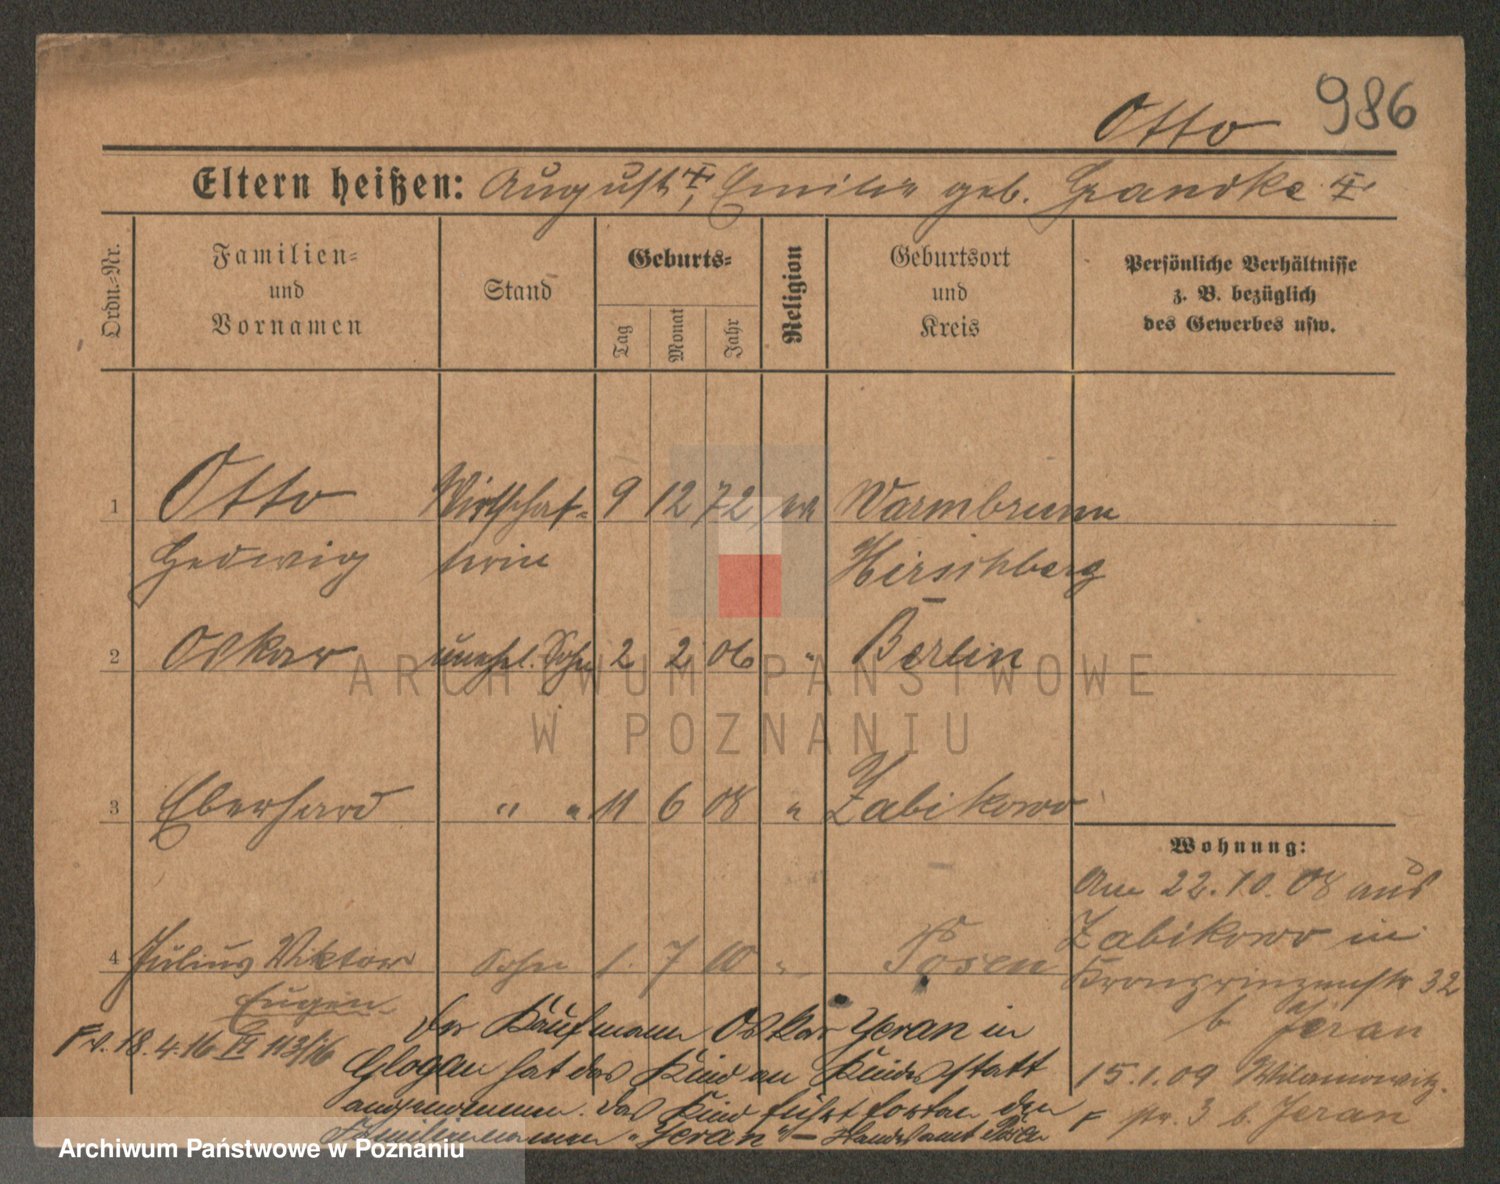 Otto 986
Eltern heißen: August †, Emilie geb. Grandke †
Ordn.-Nr.
Familien-
und
Vornamen
Stand
Geburts-
Tag
Monat
Jahr
Religion
Geburtsort
und
Kreis
Persönliche Verhältnisse
z. B. bezüglich
des Gewerbes usw.
1 Otto Wirtschaf- 9 12 72 ev Warmbrunn
Hedwig terin Hirschberg
2 Oskar unehel. Sohn 2 2 06 " Berlin
3 Eberhard " " 11 6 08 " Zabikowo
Wohnung:
Am 22.10.08 aus
Zabikowo in
Kronprinzenstr 32
b Jeran
15.1.09 Wilamowitz-
str. 3 b. Jeran
4 Julius Viktor Sohn 1. 7 10 " Posen
Eugen
F v. 18.4.16 113/16
Der Kaufmann Oskar Jeran in
Glogau hat das Kind an Kindesstatt
angenommen. Das Kind führt fortan den
Familiennamen "Jeran" – Standesamt Posen
ARCHIWUM PAŃSTWOWE
W POZNANIU
Archiwum Państwowe w Poznaniu